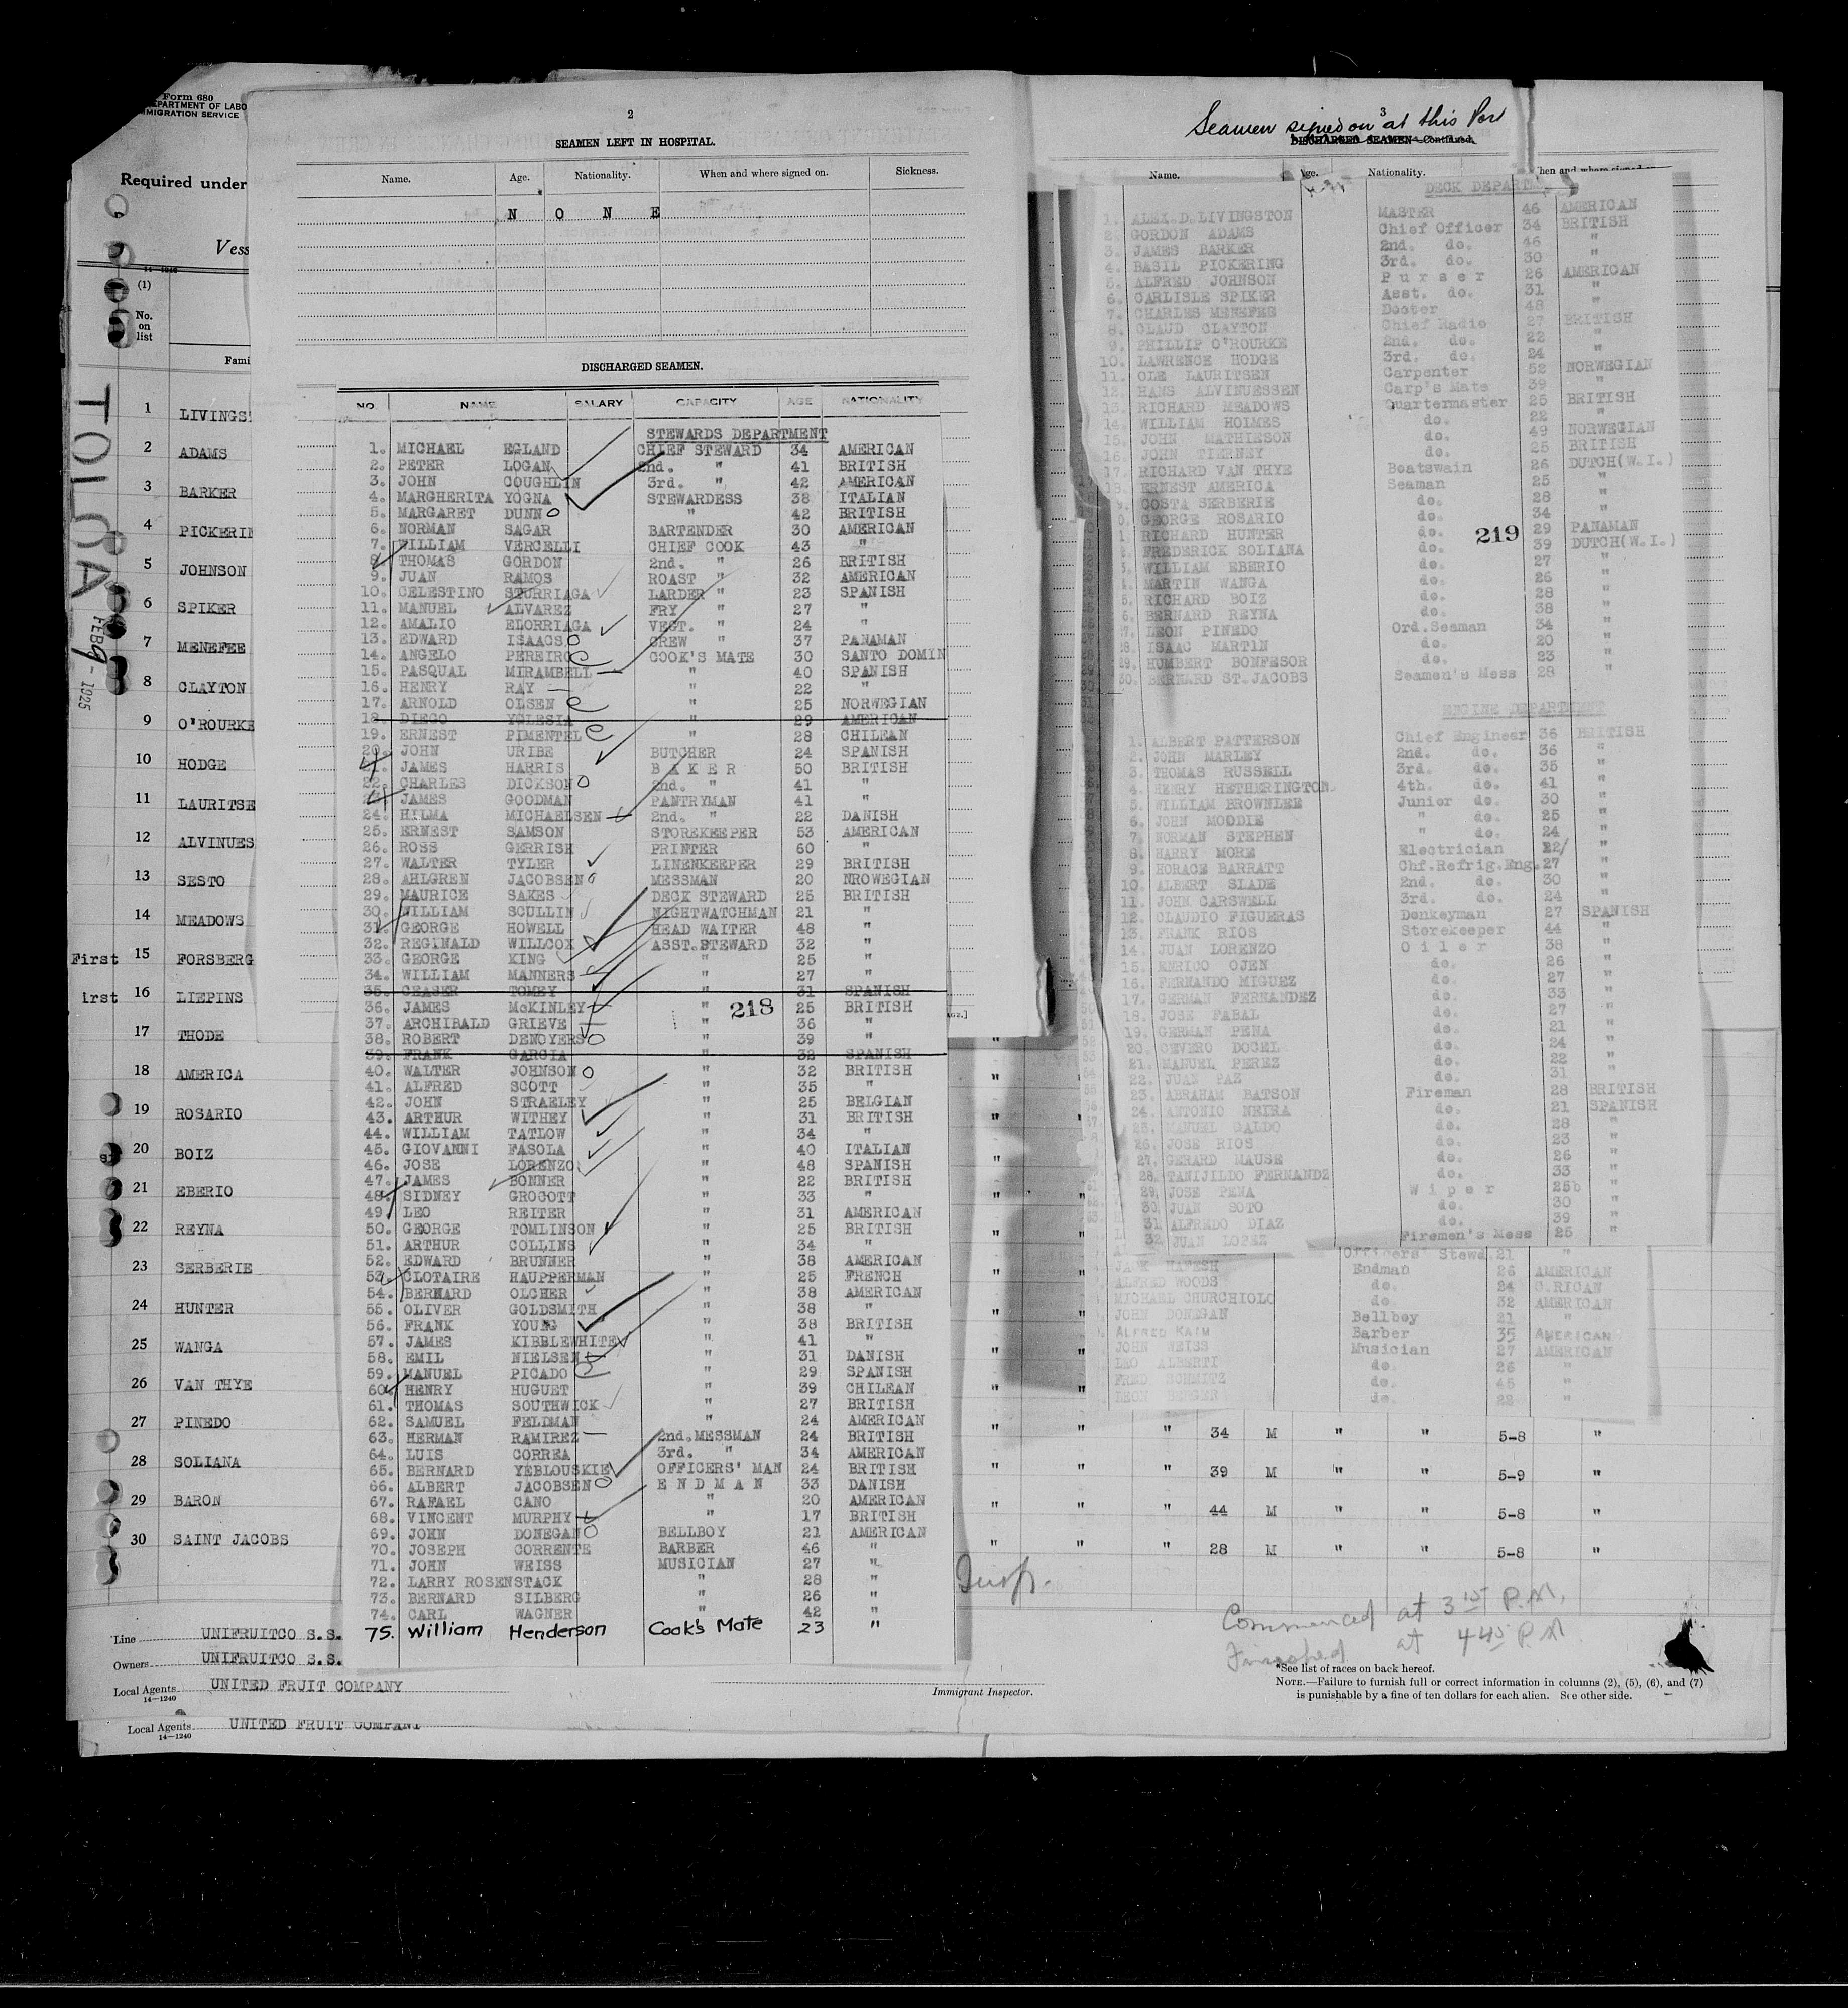 Form 680
DEPARTMENT OF LABO
IMMIGRATION SERVICE
Required under
Vess
14—1240
(1)
No.
on
list
Fami
TOLOA
FEB 9 - 1925
1 LIVINGS
2 ADAMS
3 BARKER
4 PICKERIN
5 JOHNSON
6 SPIKER
7 MENEFEE
8 CLAYTON
9 O'ROURKE
10 HODGE
11 LAURITSE
12 ALVINUES
13 SESTO
14 MEADOWS
First 15 FORSBERG
irst 16 LIEPINS
17 THODE
18 AMERICA
19 ROSARIO
20 BOIZ
21 EBERIO
22 REYNA
23 SERBERIE
24 HUNTER
25 WANGA
26 VAN THYE
27 PINEDO
28 SOLIANA
29 BARON
30 SAINT JACOBS
Line UNIFRUITCO S.S.
Owners UNIFRUITCO S.S.
Local Agents UNITED FRUIT COMPANY
14—1240
Local Agents UNITED FRUIT COMPANY
14—1240
2
SEAMEN LEFT IN HOSPITAL.
Name. Age. Nationality. When and where signed on. Sickness.
N O N E
DISCHARGED SEAMEN.
NO. NAME SALARY CAPACITY AGE NATIONALITY
STEWARDS DEPARTMENT
1. MICHAEL EGLAND CHIEF STEWARD 34 AMERICAN
2. PETER LOGAN 2nd. " 41 BRITISH
3. JOHN COUGHLIN 3rd. " 42 AMERICAN
4. MARGHERITA YOGNA STEWARDESS 38 ITALIAN
5. MARGARET DUNN " 42 BRITISH
6. NORMAN SAGAR BARTENDER 30 AMERICAN
7. WILLIAM VERCELLI CHIEF COOK 43 "
8 THOMAS GORDON 2nd. " 26 BRITISH
9. JUAN RAMOS ROAST " 32 AMERICAN
10. CELESTINO STURRIAGA LARDER " 23 SPANISH
11. MANUEL ALVAREZ FRY " 27 "
12. AMALIO ELORRIAGA VEGT. " 24 "
13. EDWARD ISAACS CREW " 37 PANAMAN
14. ANGELO PEREIRO COOK'S MATE 30 SANTO DOMIN
15. PASQUAL MIRAMBELL " 40 SPANISH
16. HENRY RAY " 22 "
17. ARNOLD OLSEN " 25 NORWEGIAN
18. DIEGO YGLESIA " 29 AMERICAN
19. ERNEST PIMENTEL " 28 CHILEAN
20. JOHN URIBE BUTCHER 24 SPANISH
21. JAMES HARRIS B A K E R 50 BRITISH
22. CHARLES DICKSON 2nd. " 41 "
23. JAMES GOODMAN PANTRYMAN 41 "
24. HILMA MICHAELSEN 2nd. " 22 DANISH
25. ERNEST SAMSON STOREKEEPER 53 AMERICAN
26. ROSS GERRISH PRINTER 60 "
27. WALTER TYLER LINENKEEPER 29 BRITISH
28. AHLGREN JACOBSEN MESSMAN 20 NROWEGIAN
29. MAURICE SAKES DECK STEWARD 25 BRITISH
30. WILLIAM SCULLIN NIGHTWATCHMAN 21 "
31. GEORGE HOWELL HEAD WAITER 48 "
32. REGINALD WILLCOX ASST.STEWARD 32 "
33. GEORGE KING " 25 "
34. WILLIAM MANNERS " 27 "
35. CEASER TOMEY " 31 SPANISH
36. JAMES McKINLEY " 25 BRITISH
218
37. ARCHIBALD GRIEVE " 36 "
38. ROBERT DENOYERS " 39 "
39. FRANK GARCIA " 32 SPANISH
40. WALTER JOHNSON " 32 BRITISH
41. ALFRED SCOTT " 35 "
42. JOHN STRAELEY " 25 BELGIAN
43. ARTHUR WITHEY " 31 BRITISH
44. WILLIAM TATLOW " 34 "
45. GIOVANNI FASOLA " 40 ITALIAN
46. JOSE LORENZO " 48 SPANISH
47. JAMES BONNER " 22 BRITISH
48. SIDNEY GROCOTT " 33 "
49. LEO REITER " 31 AMERICAN
50. GEORGE TOMLINSON " 25 BRITISH
51. ARTHUR COLLINS " 34 "
52. EDWARD BRUNNER " 38 AMERICAN
53. CLOTAIRE HAUPPERMAN " 25 FRENCH
54. BERNARD OLCHER " 38 AMERICAN
55. OLIVER GOLDSMITH " 38 "
56. FRANK YOUNG " 38 BRITISH
57. JAMES KIBBLEWHITE " 41 "
58. EMIL NIELSEN " 31 DANISH
59. MANUEL PICADO " 29 SPANISH
60. HENRY HUGUET " 39 CHILEAN
61. THOMAS SOUTHWICK " 27 BRITISH
62. SAMUEL FELDMAN " 24 AMERICAN
63. HERMAN RAMIREZ 2nd.MESSMAN 24 BRITISH
64. LUIS CORREA 3rd. " 34 AMERICAN
65. BERNARD YEBLOUSKIE OFFICERS' MAN 24 BRITISH
66. ALBERT JACOBSEN E N D M A N 33 DANISH
67. RAFAEL CANO " 20 AMERICAN
68. VINCENT MURPHY " 17 BRITISH
69. JOHN DONEGAN BELLBOY 21 AMERICAN
70. JOSEPH CORRENTE BARBER 46 "
71. JOHN WEISS MUSICIAN 27 "
72. LARRY ROSENSTACK " 28 "
73. BERNARD SILBERG " 26 "
74. CARL WAGNER " 42 "
75. William Henderson Cook's Mate 23 "
3
Seamen signed on at this Por
DISCHARGED SEAMEN—Continued.
Name. Age. Nationality. When and where signed on
DECK DEPARTM
1. ALEX.D.LIVINGSTON MASTER 46 AMERICAN
2. GORDON ADAMS Chief Officer 34 BRITISH
3. JAMES BARKER 2nd. do. 46 "
4. BASIL PICKERING 3rd. do. 30 "
5. ALFRED JOHNSON P u r s e r 26 AMERICAN
6. CARLISLE SPIKER Asst. do. 31 "
7. CHARLES MENEFEE Doctor 48 "
8. CLAUD CLAYTON Chief Radio 27 BRITISH
9. PHILLIP O'ROURKE 2nd. do. 22 "
10. LAWRENCE HODGE 3rd. do. 24 "
11. OLE LAURITSEN Carpenter 52 NORWEGIAN
12. HANS ALVINUESSEN Carp's Mate 39 "
13. RICHARD MEADOWS Quartermaster 25 BRITISH
14. WILLIAM HOLMES do. 22 "
15. JOHN MATHIESON do. 49 NORWEGIAN
16. JOHN TIERNEY do. 25 BRITISH
17. RICHARD VAN THYE Boatswain 26 DUTCH(W.I.)
18. ERNEST AMERICA Seaman 25 "
9. COSTA SERBERIE do. 28 "
0. GEORGE ROSARIO do. 34 "
1. RICHARD HUNTER do. 29 PANAMAN
219
2. FREDERICK SOLIANA do. 39 DUTCH(W.I.)
3. WILLIAM EBERIO do. 27 "
4. MARTIN WANGA do. 26 "
5. RICHARD BOIZ do. 28 "
6. BERNARD REYNA do. 38 "
27. LEON PINEDO Ord.Seaman 34 "
28. ISAAC MARTIN do. 20 "
29. HUMBERT BONFESOR do. 23 "
30. BERNARD ST.JACOBS Seamen's Mess 28 "
ENGINE DEPARTMENT
1. ALBERT PATTERSON Chief Engineer 36 BRITISH
2. JOHN MARLEY 2nd. do. 36 "
3. THOMAS RUSSELL 3rd. do. 35 "
4. HENRY HETHERINGTON 4th. do. 41 "
5. WILLIAM BROWNLEE Junior do. 30 "
6. JOHN MOODIE " do. 25 "
7. NORMAN STEPHEN " do. 24 "
8. HARRY MORE Electrician 22 "
9. HORACE BARRATT Chf.Refrig.Eng. 27 "
10. ALBERT SLADE 2nd. do. 30 "
11. JOHN CARSWELL 3rd. do. 24 "
12. CLAUDIO FIGUERAS Donkeyman 27 SPANISH
13. FRANK RIOS Storekeeper 44 "
14. JUAN LORENZO O i l e r 38 "
15. ENRICO OJEN do. 26 "
16. FERNANDO MIGUEZ do. 27 "
17. GERMAN FERNANDEZ do. 33 "
18. JOSE FABAL do. 27 "
19. GERMAN PENA do. 21 "
20. CEVERO DOCEL do. 24 "
21. MANUEL PEREZ do. 22 "
22. JUAN PAZ do. 31 "
23. ABRAHAM BATSON Fireman 28 BRITISH
24. ANTONIO NEIRA do. 21 SPANISH
25. MANUEL GALDO do. 28 "
26. JOSE RIOS do. 23 "
27. GERARD MAUSE do. 26 "
28. TANIJILDO FERNANDZ do. 33 "
29. JOSE PENA W i p e r 25 "
30. JUAN SOTO do. 30 "
31. ALFREDO DIAZ do. 39 "
32. JUAN LOPEZ Firemen's Mess 25 "
Officers' Stewd 21 "
JACK Endman 26 AMERICAN
ALFRED WOODS do. 24 C.RICAN
MICHAEL CHURCHIOLO do. 32 AMERICAN
JOHN DONEGAN Bellboy 21 "
ALFRED KAIM Barber 35 AMERICAN
JOHN WEISS Musician 27 AMERICAN
LEO ALBERTI do. 26 "
FRED SCHMITZ do. 45 "
LEON BERGER do. 22 "
" " " 34 M " " 5-8 "
" " " 39 M " " 5-9 "
" " " 44 M " " 5-8 "
" " " 28 M " " 5-8 "
Insp.
Commenced at 3 15 P.M.
Finished at 4 45 P.M
Immigrant Inspector.
*See list of races on back hereof.
NOTE.—Failure to furnish full or correct information in columns (2), (5), (6), and (7)
is punishable by a fine of ten dollars for each alien. See other side.